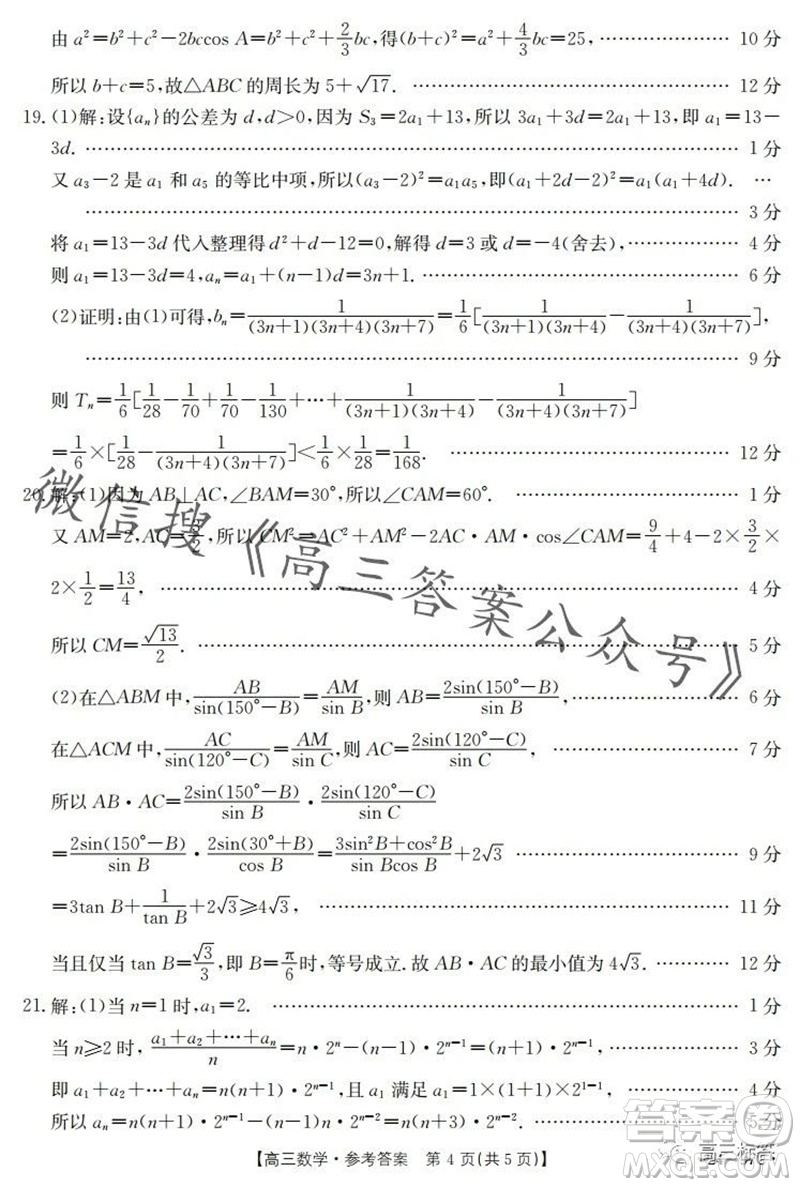 由 a²=b²+c²-2bccos A=b²+c²+\frac{2}{3}bc,得(b+c)²=a²+\frac{4}{3}bc=25, ………………… 10 分
所以 b+c=5,故△ABC 的周长为 5+√17. ………………… 12 分
19. (1)解:设{aₙ}的公差为 d,d>0,因为 S₃=2a₁+13,所以 3a₁+3d=2a₁+13,即 a₁=13-
3d. ………………… 1 分
又 a₃-2 是 a₁ 和 a₅ 的等比中项,所以(a₃-2)²=a₁a₅,即(a₁+2d-2)²=a₁(a₁+4d). …
………………… 3 分
将 a₁=13-3d 代入整理得 d²+d-12=0,解得 d=3 或 d=-4(舍去), ………………… 4 分
则 a₁=13-3d=4,aₙ=a₁+(n-1)d=3n+1. ………………… 6 分
(2)证明:由(1)可得,bₙ=\frac{1}{(3n+1)(3n+4)(3n+7)}=\frac{1}{6}[\frac{1}{(3n+1)(3n+4)}-\frac{1}{(3n+4)(3n+7)}],
………………… 9 分
则 Tₙ=\frac{1}{6}[\frac{1}{28}-\frac{1}{70}+\frac{1}{70}-\frac{1}{130}+⋯+\frac{1}{(3n+1)(3n+4)}-\frac{1}{(3n+4)(3n+7)}]
=\frac{1}{6}×[\frac{1}{28}-\frac{1}{(3n+4)(3n+7)}]<\frac{1}{6}×\frac{1}{28}=\frac{1}{168}. ………………… 12 分
20. 解:(1)因为 AB⊥AC,∠BAM=30°,所以∠CAM=60°. ………………… 1 分
又 AM=2,AC=\frac{3}{2},所以 CM²=AC²+AM²-2AC·AM·cos∠CAM=\frac{9}{4}+4-2×\frac{3}{2}×
2×\frac{1}{2}=\frac{13}{4}, ………………… 4 分
所以 CM=\frac{√13}{2}. ………………… 5 分
(2)在△ABM 中,\frac{AB}{sin(150°-B)}=\frac{AM}{sin B},则 AB=\frac{2sin(150°-B)}{sin B}, ………………… 6 分
在△ACM 中,\frac{AC}{sin(120°-C)}=\frac{AM}{sin C},则 AC=\frac{2sin(120°-C)}{sin C}, ………………… 7 分
所以 AB·AC=\frac{2sin(150°-B)}{sin B}·\frac{2sin(120°-C)}{sin C}
=\frac{2sin(150°-B)}{sin B}·\frac{2sin(30°+B)}{cos B}=\frac{3sin²B+cos²B}{sin Bcos B}+2√3 ………………… 9 分
=3tan B+\frac{1}{tan B}+2√3≥4√3, ………………… 11 分
当且仅当 tan B=\frac{√3}{3},即 B=\frac{π}{6}时,等号成立.故 AB·AC 的最小值为 4√3. ………………… 12 分
21. 解:(1)当 n=1 时,a₁=2. ………………… 1 分
当 n≥2 时,\frac{a₁+a₂+⋯+aₙ}{n}=n·2ⁿ-(n-1)·2ⁿ⁻¹=(n+1)·2ⁿ⁻¹, ………………… 3 分
即 a₁+a₂+⋯+aₙ=n(n+1)·2ⁿ⁻¹,且 a₁ 满足 a₁=1×(1+1)×2¹⁻¹, ………………… 4 分
所以 aₙ=n(n+1)·2ⁿ⁻¹-(n-1)n·2ⁿ⁻²=n(n+3)·2ⁿ⁻². ………………… 5 分
【高三数学·参考答案 第 4 页(共 5 页)】
微信搜《高三答案公众号》
答案圈
MXQE.COM